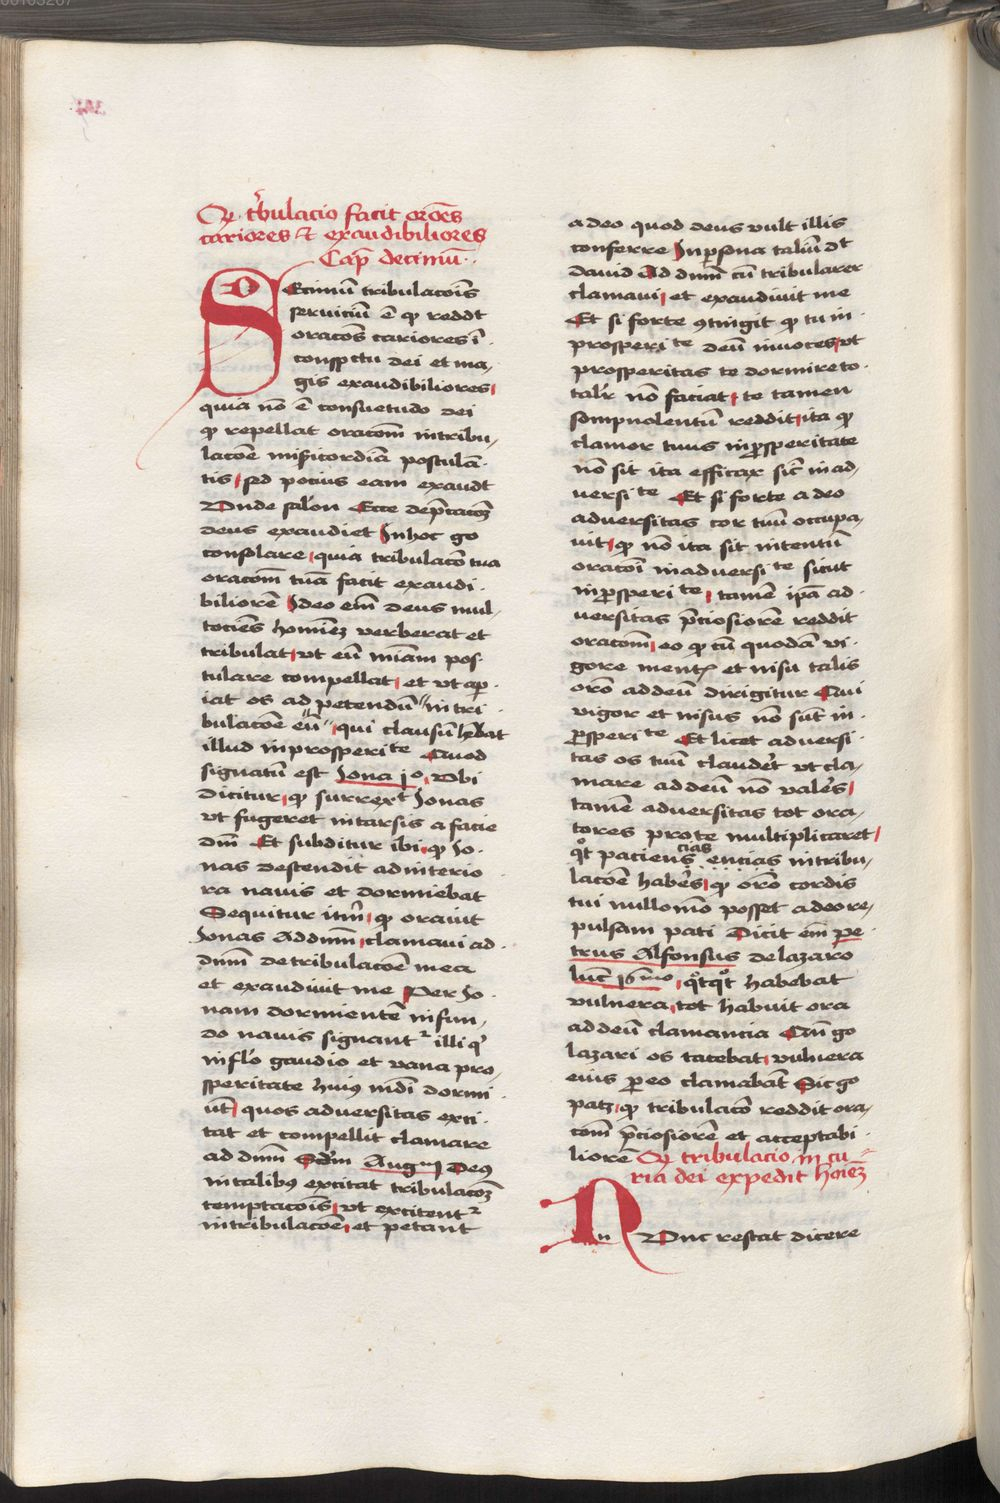 Qꝫ tͥbulacio facit oro̅es
cariores et exaudibiliores
Cap̅ decimu̅
DEcimu̅ tribulaco̅is
seruiciu̅ e̅ qꝫ reddt
oraco̅s cariores i̅
conspectu dei et ma
gis exaudibiliores
quia no̅ e̅ consuetudo dei
qꝫ repellat oraco̅m in tribu
laco̅e mis̅icordia̅ postula̅
tis sed pocius eam exaudt
Vnde salo̅n Ecce dep̅caco̅ꝫ
deus exaudiet In hoc go
consolare quia tribulaco̅ tua
oraco̅m tua̅ facit exaudi
biliore̅ Ideo em̅ deus mul
tocie̅s homine̅ꝫ verberat et
tribulat vt eu̅ mi̅am pos
tulare compellat et vt ap
iat os ad petendu̅ in tri
bulaco̅e eu̅ qui clausu̅ he̅bat
illud in prosperite Quod
signatu̅ est Iona jo vbi
dicitur qꝫ surrext Ionas
vt fugeret in tarsis a facie
dm̅ Et subditur ibi qꝫ Io
nas descendit ad interio
ra nauis et dormiebat
Sequitur itm̅ qꝫ orauit
Ionas Ad dnm̅ clamaui ad
dnm̅ de tribulaco̅e mea
et exaudiuit me Per Io
nam dormiente̅ in fun
do nauis signantᷣ illi qͥ
in flo̅ gaudio et vana pro
speritate huius mdi̅ dormi
u̅t quos aduersitas exci
tat et compellit clamare
ad dnm̅ Scdm̅ Augꝰ Deus
in talibus excitat tribulaco̅ꝫ
temptaco̅is vt excitentᷣ
in tribulaco̅e et petant
a deo quod deus vult illis
conferre In p̲sona taliu̅ dt
dauid Ad dnm̅ cu̅ tribularer
clamaui et exaudiuit me
Et si forte ꝯtingit qꝫ tu in
prosperite deu̅ inuoces vt
prosperitas te dormire to
talr̅ no̅ faciat te tamen
sompnolentu̅ reddit ita qꝫ
clamor tuus in prosperitate
no̅ sit ita efficax sic̅ in ad
uersite Et si forte a deo
aduersitas cor tuu̅ occupa
uit qꝫ no̅ ita sit intentu̅
oraco̅i in aduersite sicut
in prosperite tame̅ ip̅a ad
uersitas p̅ciosiore̅ reddit
oraco̅m eo qꝫ cu̅ quoda̅ vi
gore mentꝭ et nisu talis
oro̅ ad deu̅ dirigitur Qui
vigor et nisus no̅ su̅t in
prosperite Et licet aduersi
tas os tuu̅ claude̅t vt cla
mare ad deu̅ no̅ vale̅s
tame̅ aduersitas tot ora
tores pro te multiplicaret
qͦt paciens cias encias in tribu
laco̅e habe̅s qꝫ oro̅ cordis
tui nullomo̅ posset a deo re
pulsam pati Dicit em̅ pe
trus Alfonsus de lazaro
luc̅ 16mo qͦtqͦt habebat
vulnera tot habuit ora
ad deu̅ clamancia Cu̅ go
lazari os tacebat vulnera
eius p̲ eo clamaba̅t Sic go
patꝫ qꝫ tribulaco̅ reddit ora
com̅ p̅ciosiore̅ et acceptabi
liore̅ Qꝫ tribulacio in cu
ria dei expedit ho̅ieꝫ
NVnc restat dicere